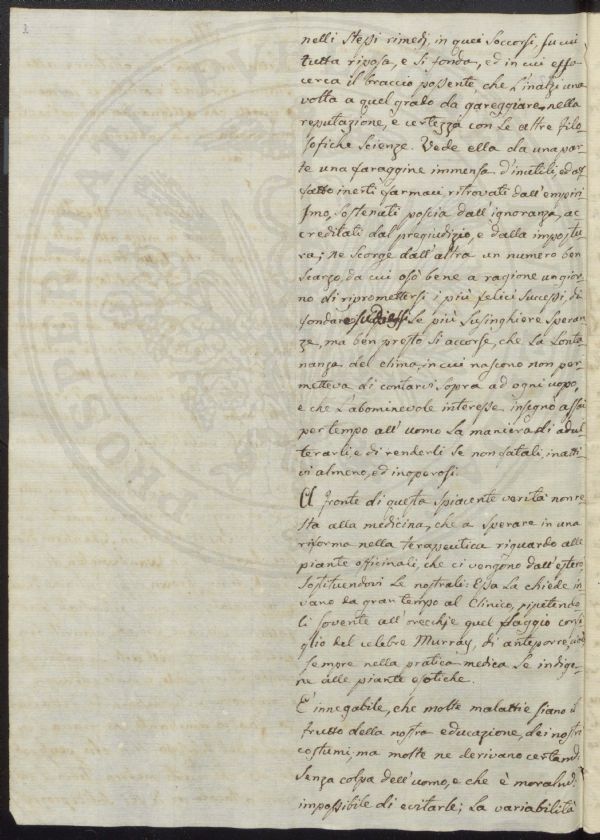 2
nelli stessi rimedj, in quei soccorsi, su cui
tutta riposa, e si fonda, ed in cui effo
cerca il braccio possente, che l'inalzi una
volta a quel grado da gareggiare nella
reputazione, e certezza con le altre filo
sofiche scienze. Vede ella da una par
te una farraggine immensa d'inutili, ed af
fatto inerti farmaci ritrovati dall'empiri
smo, sostenuti poscia dall'ignoranza, ac
creditati dal pregiudizio, e dalla impostu
ra; ne scorge dall'altra un numero ben
scarzo, da cui osò bene a ragione un gior
no di ripromettersi i più felici successi, di
fondare su di essi le più lusinghiere speran
ze, ma ben presto si accorse, che la lonta
nanza del clima, in cui nascono non per
metteva di contarvi sopra ad ogni uopo,
e che l'abominevole interesse insegnò assai
per tempo all'uomo la maniera di adul
terarli, e di renderli se non fatali, inatti
vi almeno, ed inoperosi.
A fronte di questa spiacente verità non re
sta alla medicina, che a sperare in una
riforma nella terapeutica riguardo alle
piante officinali, che ci vengono dall'estero
sostituendovi le nostrali: Essa la chiede in
vano da gran tempo al Clinico, ripetendo
li sovente all'orecchie quel saggio consi
glio del celebre Murray, di anteporre, cioè
sempre nella pratica medica le indige
ne alle piante esotiche.
E' innegabile, che molte malattie siano il
frutto della nostra educazione, dei nostri
costumi; ma molte ne derivano certam.
senza colpa dell'uomo, e che è moralm.
impossibile di evitarle; la variabilità
PROSPERITATI PUBL